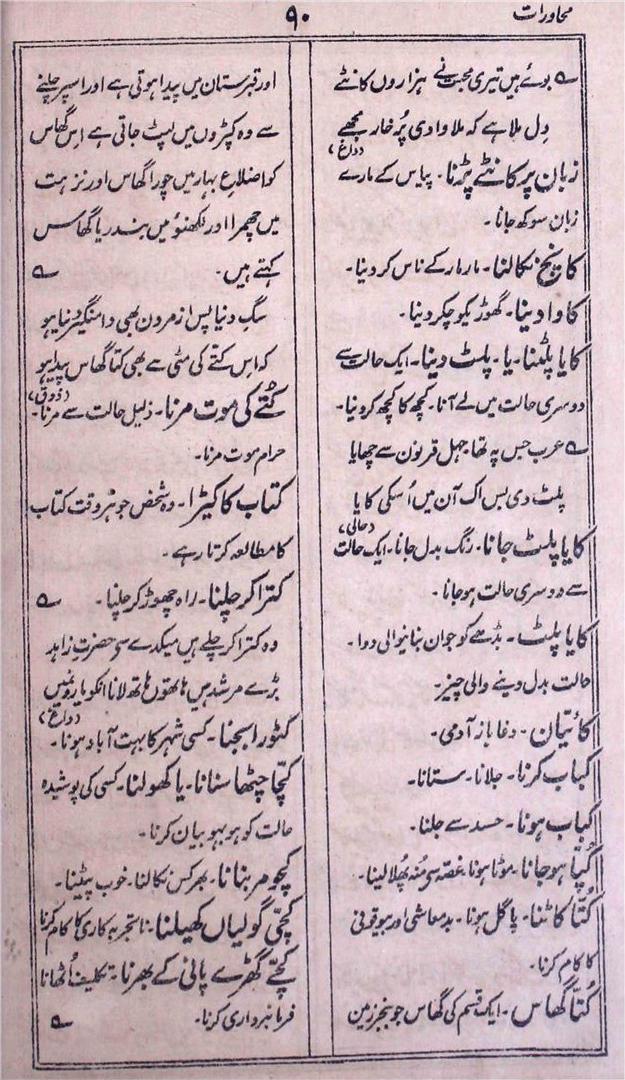 محاورات
۹۰
؎ بوئے ہیں تیری محبت نے ہزاروں کانٹے
دل ملا ہے کہ ملا وادی پُرخار مجھے
(داغ)
زبان پر کانٹے پڑنا۔ پیاس کے مارے
زبان سوکھ جانا۔
کانچ نکالنا۔ مار مار کے ناس کر دینا۔
کاوا دینا۔ گھوڑیکو چکر دینا۔
کایا پلٹنا۔ یا۔ پلٹ دینا۔ ایک حالت سے
دوسری حالت میں لے آنا۔ کچھ کا کچھ کر دینا۔
؎ عرب جس پہ تھا جہل قرنوں سے چھایا
پلٹ دی بس اک آن میں اُسکی کایا
(حالی)
کایا پلٹ جانا۔ رنگ بدل جانا۔ ایک حالت
سے دوسری حالت ہو جانا۔
کایا پلٹ۔ بڈھے کو جوان بنانیوالی دوا۔
حالت بدل دینے والی چیز۔
کائیاں۔ دغا باز آدمی۔
کباب کرنا۔ جلانا۔ ستانا۔
کباب ہونا۔ حسد سے جلنا۔
کُپّا ہو جانا۔ موٹا ہونا۔ غصہ سے مُنہ پھلا لینا۔
کُتّا کاٹنا۔ پاگل ہونا۔ بدمعاشی اور بیوقوفی
کا کام کرنا۔
کُتّا گھاس۔ ایک قسم کی گھاس جو بنجر زمین
اور قبرستان میں پیدا ہوتی ہے اور اسپر چلنے
سے وہ کپڑوں میں لپٹ جاتی ہے اس گھاس
کو اضلاع بہار میں چورا گھاس اور نزہت
میں چھمرا اور لکھنؤ میں بندریا گھاس
کہتے ہیں۔ ؎
سگِ دنیا پس از مردن بھی دامنگیر دنیا ہو
کہ اس کتے کی مٹی سے بھی کتا گھاس پیدا ہو
(ذوق)
کُتے کی موت مرنا۔ ذلیل حالت سے مرنا۔
حرام موت مرنا۔
کتاب کا کیڑا۔ وہ شخص جو ہر وقت کتاب
کا مطالعہ کرتا رہے۔
کترا کر چلنا۔ راہ چھوڑ کر چلنا۔ ؎
وہ کترا کر چلے ہیں میکدے سے حضرتِ زاہد
بڑے مرشد ہیں ہاتھوں ہاتھ لانا انکو یارو
(داغ)
کٹورا بجنا۔ کسی شہر کا بہت آباد ہونا۔
کچا چٹھا سنانا۔ یا کھولنا۔ کسی کی پوشیدہ
حالت کو ہو بہو بیان کرنا۔
کچومر بنانا۔ بھرکس نکالنا۔ خوب پٹینا۔
کچی گولیاں کھیلنا۔ ناتجربہ کاری کا کام کرنا
کچے گھڑے پانی کے بھرنا۔ تکلیف اُٹھانا
فرمانبرداری کرنا۔ ؎